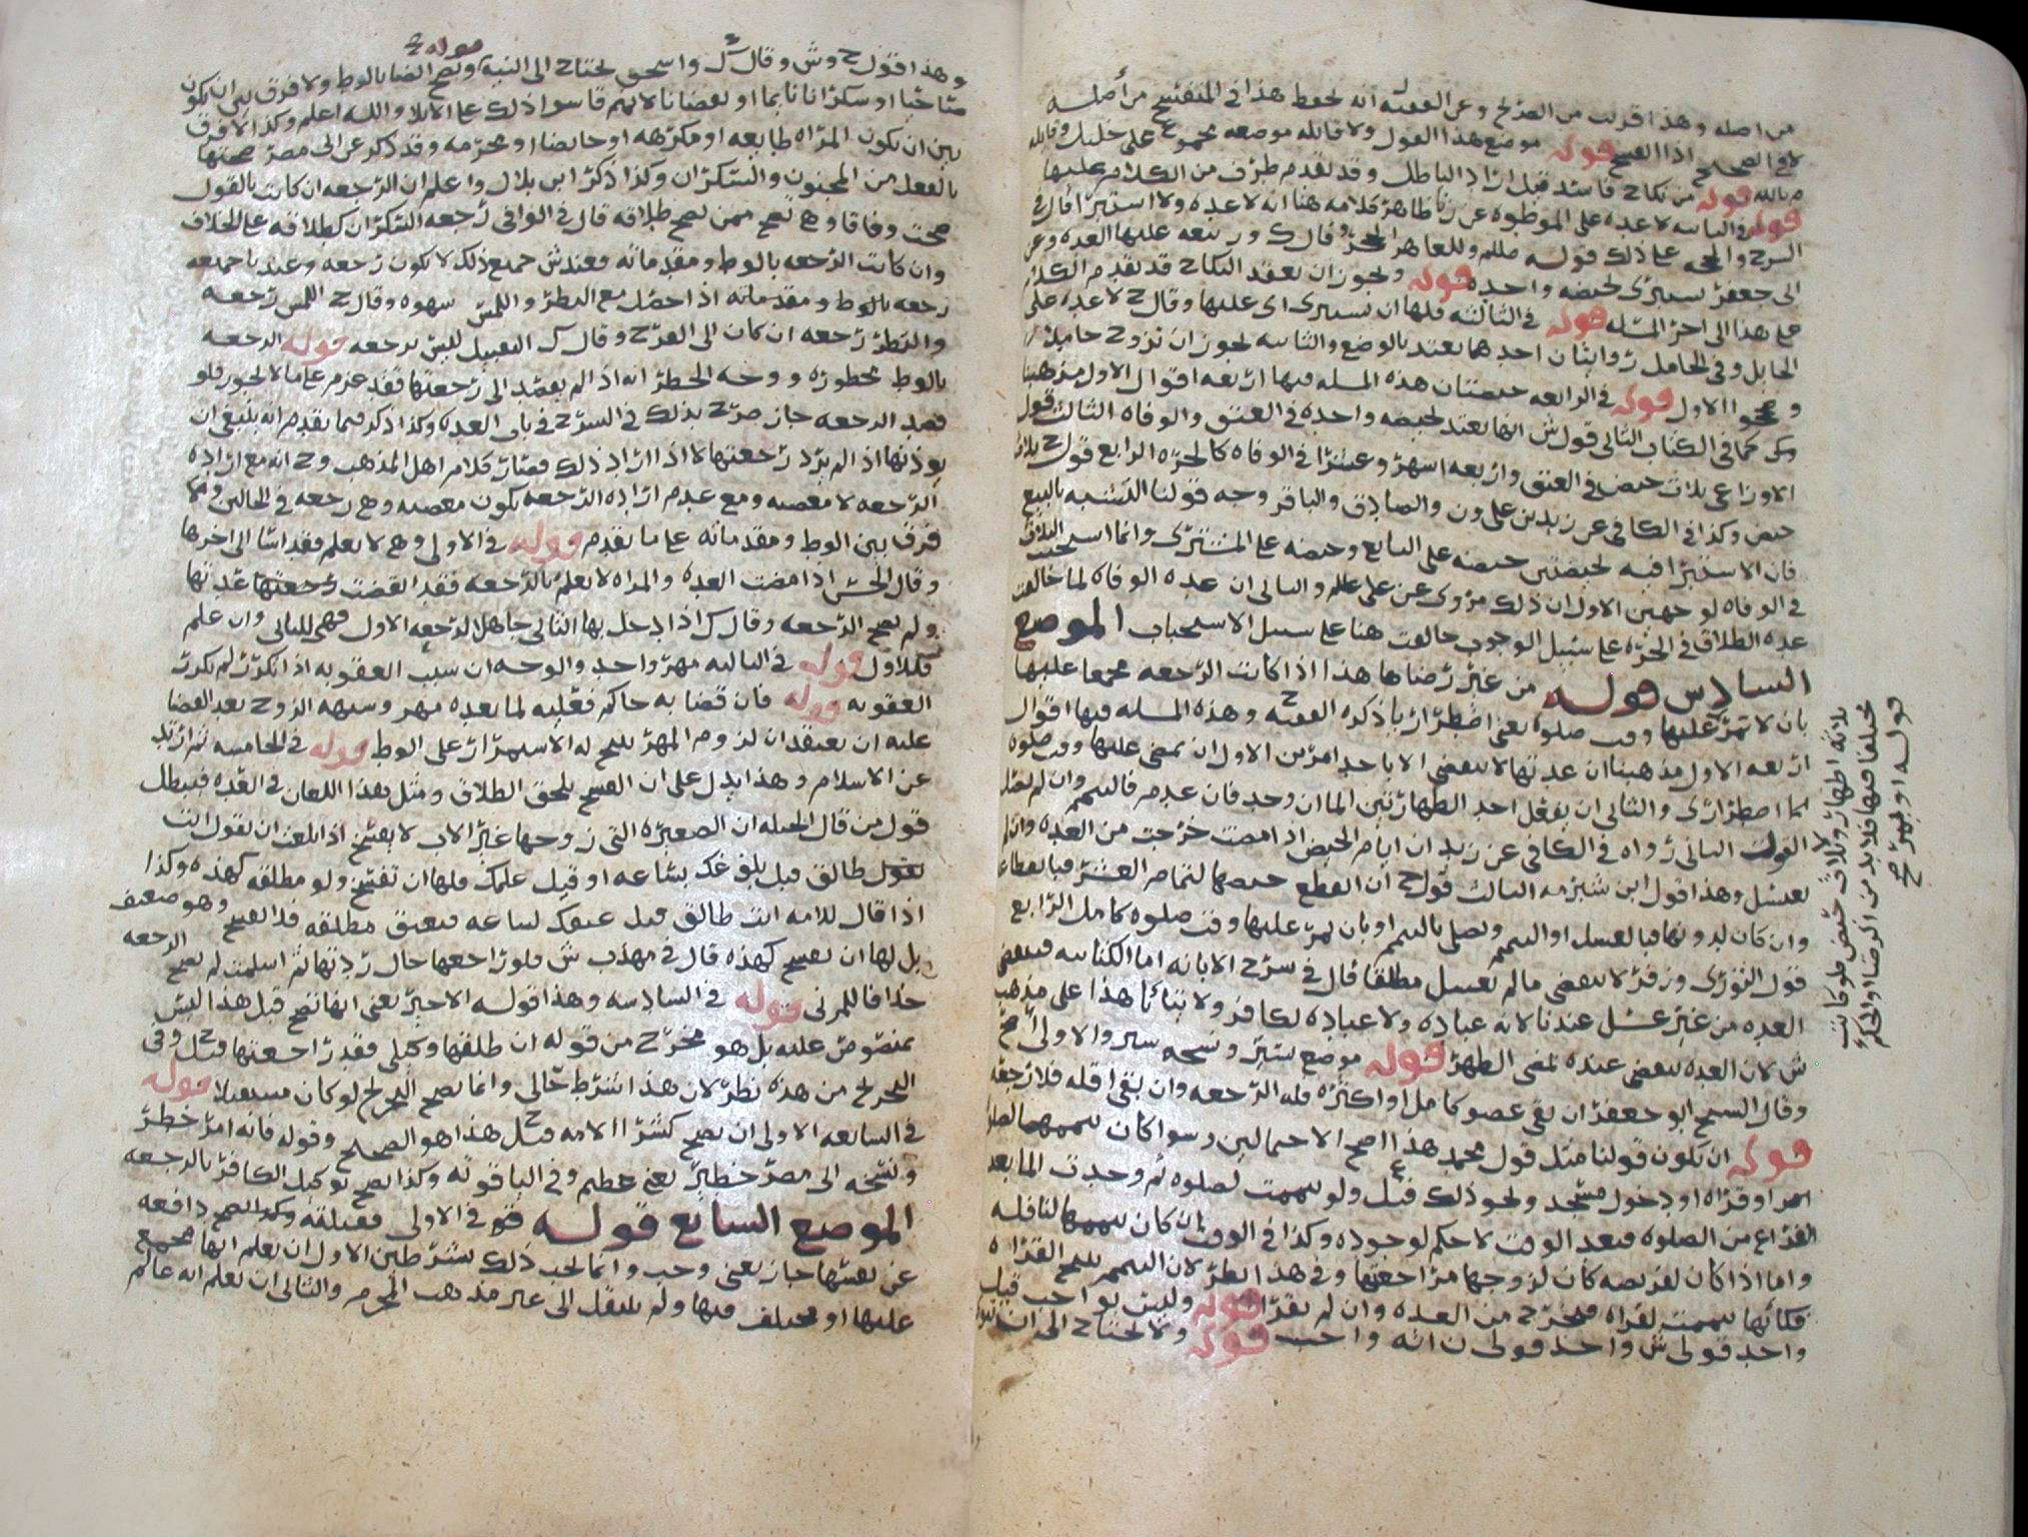 من اصله وهذا اقرب من وعن الفقيه انه هذا في المنفسخ من أصله
لا في الصحيح اذا انفسخ قوله موضع هذا القول ولا قائله موضعه
بالله قوله من نكاح فاسد قيل اراد الباطل وقد تقدم طرف من الكلام عليها
قوله والثانيه لا عده على الموطوه عن زنا ظاهر كلامه هنا انه لا عده ولا استبرا قال في
الشرح والحجه على ذلك قوله صللم وللعاهر الحجر وقال ك ور يتبعه عليها العده وعن
ابي جعفر تستبرى بحيضه واحده قوله ويجوز ان يعقد النكاح قد تقدم الكلام
على هذا الى اخر المسله قوله في الثالثه فلها ان تستبرى اى عليها وقال ح لا عده على
الحايل وفي الحامل روايتان احدهما تعتد بالوضع والثانيه يجوز ان تزوج حاملا
وصححوا الاول قوله في الرابعه حيضتان هذه المسله فيها اربعه اقوال الاول مذهبنا
كما في الكتاب الثاني قول ش انها تعتد بحيضه واحده في العتق والوفاه الثالث قول
الاوزاعي ثلاث حيض في العتق واربعه اشهر وعشرا في الوفاه كالحره الرابع قول ح ثلاث
حيض وكذا في الكافي عن زيد بن علي ون والصادق والباقر وجه قولنا التشبيه بالبيع
فان الاستبرا فيه بحيضتين حيضه على البايع وحيضه على المشترى وانما استحب الثلاث
في الوفاه لوجهين الاول ان ذلك مروى عن علي علم والثاني ان عده الوفاه لما خالفت
عده الطلاق في الحره على سبيل الوجوب خالفت هنا على سبيل الاستحباب الموضع
السادس قوله من غير رضاها هذا اذا كانت الرجعه مجمعا عليها
بان لا تمر عليها وقت صلوه يعني اضطراريا ذكره الفقيه ح وهذه المسله فيها اقوال
اربعه الاول مذهبنا ان عدتها لا تنقضي الا باحد امرين الاول ان يمضي عليها وقت صلوه
اما اضطرارى والثاني ان تفعل احد الطهارتين الما ان وجد فان عدم فالتيمم وان لم تصل
القول الثاني رواه في الكافي عن زيد ان ايام الحيض اذا مضت خرجت من العده وان لم
تغتسل وهذا قول ابن شبرمه الثالث قول ح ان انقطع حيضها لتمام العشر فبانقطاعه
وان كان لدونها فبالغسل او التيمم وتصلي بالتيمم او بان يمر عليها وقت صلوه كامل الرابع
قول الثورى وزفر لا تنقضي ما لم تغتسل مطلقا قال في شرح الابانه اما الكتابيه فتنقضي
العده من غير غسل عندنا لانه عباده ولا عباده لكافر ولا يتاتا هذا على مذهب
ش لان العده تنقضي عنده بمضي الطهر قوله موضع ستر ونسخه سبر والاولى اصح
وقال الشيخ ابو جعفر ان بقي عضو كامل او اكثره فله الرجعه وان بقي اقله فلا رجعه
قوله ان يكون قولنا مثل قول محمد هذا اصح الاحتمالين وسوا كان تيممها لصلوه
او قراه او دخول مسجد ونحو ذلك قيل ولو تيممت لصلوه ثم وجدت الما بعد
الفراغ من الصلوه فبعد الوقت لا حكم لوجوده وكذا في الوقت ان كان تيممها لنافله
واما اذا كان لفريضه كان لزوجها مراجعتها وفي هذا نظر لان التيمم يبيح القراه
فكانها تيممت لقراه فتخرج من العده وان لم تقرا قوله وليس بواجب قيل
واحد قولي ش واحد قولي ن انه واجب قوله ولا يحتاج الى ان
قوله او لم يرضى صح
مختلفا فيها فلا بد من الرضا او الحكم
ثلاثه اطهار وثلاث حيض فلو كانت
وهذا قول ح وش وقال ك واسحق يحتاج الى النيه قوله وتصح ايضا بالوط ولا فرق بين ان يكون
صاحيا او سكرانا نايما او يقضانا لانهم قاسوا ذلك على الايلا والله اعلم وكذا لا فرق
بين ان تكون المراه طايعه او مكرهه او حايضا او محرمه وقد ذكر عن ابي مضر صحتها
بالفعل من المجنون والسكران وكذا ذكر ابن بلال واعلم ان الرجعه ان كانت بالقول
صحت وفاقا وهي تصح ممن يصح طلاقه قال في الوافي رجعه السكران كطلاقه على الخلاف
وان كانت الرجعه بالوط ومقدماته فعند ش جميع ذلك لا يكون رجعه وعندنا جميعه
رجعه بالوط ومقدماته اذا حصل مع النظر واللمس شهوه وقال ح اللمس رجعه
والنظر رجعه ان كان الى الفرج وقال ك التقبيل ليس برجعه قوله الرجعه
بالوط محظوره ووجه الحظر انه اذا لم يقصد الى رجعتها فقد عزم على ما لا يجوز فلو
قصد الرجعه جاز صرح بذلك في الشرح في باب العده وكذا ذكر فيما تقدم انه ينبغي ان
يوذنها اذا لم يرد رجعتها لا اذا اراد ذلك فصار كلام اهل المذهب وح انه مع اراده
الرجعه لا معصيه ومع عدم اراده الرجعه يكون معصيه وهي رجعه في الحالين ولا
فرق بين الوط ومقدماته على ما تقدم قوله في الاولى وهي لا تعلم فقد اسا الى اخرها
وقال الحسن اذا مضت العده والمراه لا تعلم بالرجعه فقد انقضت عدتها
ولم تصح الرجعه وقال ك اذا دخل بها الثاني جاهل الرجعه الاول فهي للثاني وان علم
فللاول قوله في الثانيه مهر واحد والوجه ان سبب العقوبه اذا تكرر لم تكرر
العقوبه قوله فان قضا به حاكم فعليه لما بعده مهر وشبهه الزوج بعد القضا
عليه ان يعتقد ان لزوم المهر يبيح له الاستمرار على الوط قوله في الخامسه ثم ارتد
عن الاسلام وهذا يدل على ان الفسخ يلحق الطلاق ومثل هذا اللعان في العده فيبطل
قول من قال الحيله ان الصغيره التي زوجها غير الاب لا تفسخ اذا بلغت ان يقول انت
طالق قبل بلوغك بساعه او قبل علمك فلها ان تفسخ ولو مطلقه كهذه وكذا
اذا قال للامه انت طالق قبل عتقك بساعه فتعتق مطلقه فلا تفسخ وهو ضعيف
بل لها ان تفسخ كهذه قال في مهذب ش فلو راجعها حال ردتها ثم اسلمت لم تصح الرجعه
خلافا للمزني قوله في السادسه وهذا قوله الاخير يعني انها تصح قبل هذا ليس
بمنصوص عليه بل هو مخرج من قوله ان طلقها وكيلي فقد راجعتها قيل ح وفي
التخريج من هذه نظر لان هذا شرط حالي وانما يصح التخريج لو كان مستقبلا قوله
في السابعه الاولى ان تصح كشرا الامه قيل ح هذا هو الصحيح وقوله فانه امر خطر
ونسخه ابي مضر خطير يعني عظيم وفي الباقوته وكذا يصح توكيل الكافر بالرجعه
الموضع السابع قوله في الاولى فقبلته وكذا لتصح دافعه
عن نفسها جاز يعني وجب وانما يجب ذلك بشرطين الاول ان تعلم انها مجمع
عليها او مختلف فيها ولم ينتقل الى غير مذهب المحرم والثاني ان تعلم انه عالم